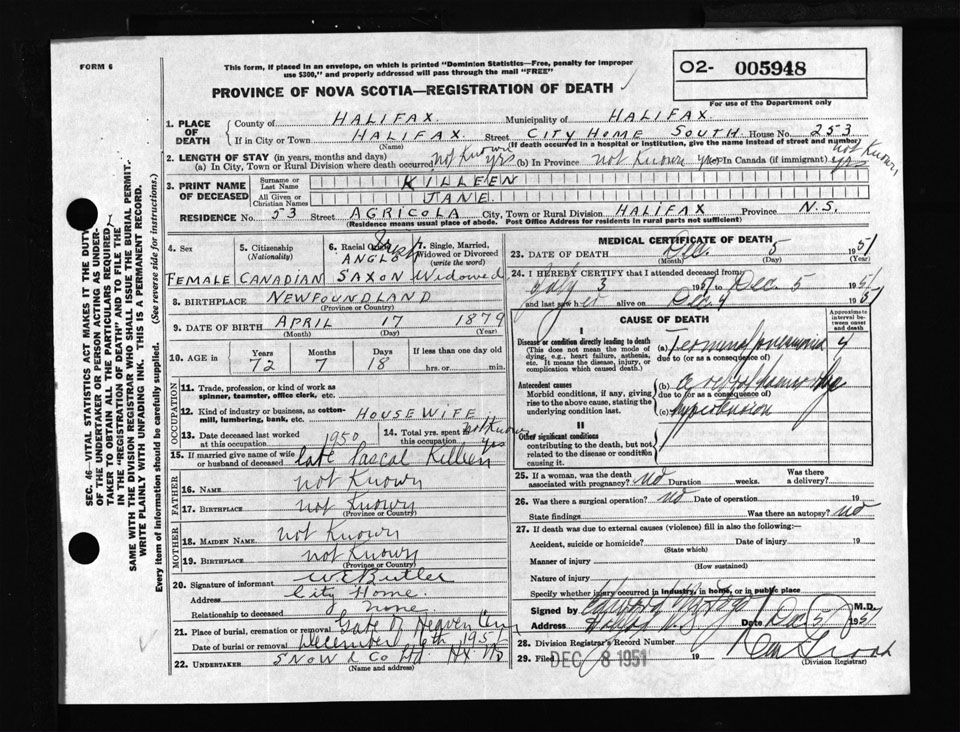 FORM 6
This form, if placed in an envelope, on which is printed "Dominion Statistics—Free, penalty for improper
use $300," and properly addressed will pass through the mail "FREE"
PROVINCE OF NOVA SCOTIA—REGISTRATION OF DEATH
O2- 005948
For use of the Department only
SEC. 46 VITAL STATISTICS ACT MAKES IT THE DUTY
OF THE UNDERTAKER OR PERSON ACTING AS UNDER-
TAKER TO OBTAIN ALL THE PARTICULARS REQUIRED
IN THE "REGISTRATION OF DEATH" AND TO FILE THE
SAME WITH THE DIVISION REGISTRAR WHO SHALL ISSUE THE BURIAL PERMIT.
WRITE PLAINLY WITH UNFADING INK. THIS IS A PERMANENT RECORD.
Every item of information should be carefully supplied. (See reverse side for instructions.)
1. PLACE OF DEATH
County of HALIFAX. Municipality of HALIFAX.
If in City or Town HALIFAX. Street CITY HOME SOUTH. House No. 253
(Name) (If death occurred in a hospital or institution, give the name instead of street and number)
2. LENGTH OF STAY (in years, months and days)
(a) In City, Town or Rural Division where death occurred not Known yrs (b) In Province not Known yrs In Canada (if immigrant) not Known yrs
3. PRINT NAME OF DECEASED
Surname or Last Name KILLEEN
All Given or Christian Names JANE
RESIDENCE No. 53 Street AGRICOLA City, Town or Rural Division HALIFAX Province N.S.
(Residence means usual place of abode. Post Office Address for residents in rural parts not sufficient)
4. Sex FEMALE
5. Citizenship (Nationality) CANADIAN
6. Racial Origin ANGLO SAXON Irish
7. Single, Married, Widowed or Divorced (write the word) Widowed
8. BIRTHPLACE NEWFOUNDLAND
(Province or Country)
9. DATE OF BIRTH APRIL 17 1879
(Month) (Day) (Year)
10. AGE in Years 72 Months 7 Days 18 If less than one day old hrs. or min.
OCCUPATION
11. Trade, profession, or kind of work as
spinner, teamster, office clerk, etc.
12. Kind of industry or business, as cotton-
mill, lumbering, bank, etc. HOUSEWIFE
13. Date deceased last worked at this occupation 1950
14. Total yrs. spent in this occupation not Known yrs
15. If married give name of wife
or husband of deceased late Pascal Killeen
FATHER
16. NAME not Known
17. BIRTHPLACE not Known
(Province or Country)
MOTHER
18. MAIDEN NAME not Known
19. BIRTHPLACE not Known
(Province or Country)
20. Signature of informant W. E. Butler
Address City Home.
Relationship to deceased none.
21. Place of burial, cremation or removal Gate of Heaven Cem
Date of burial or removal December 1951
22. UNDERTAKER SNOW & Co Ltd Hx NS
(Name and address)
MEDICAL CERTIFICATE OF DEATH
23. DATE OF DEATH Dec. 5 1951
(Month) (Day) (Year)
24. I HEREBY CERTIFY that I attended deceased from
July 3 1951 to Dec. 5 1951
and last saw her alive on Dec 4 1951
CAUSE OF DEATH
Approximate interval between onset and death
I
Disease or condition directly leading to death
(This does not mean the mode of
dying, e.g., heart failure, asthenia,
etc. It means the disease, injury, or
complication which caused death.)
(a) Terminal pneumonia 4
due to (or as a consequence of)
Antecedent causes
Morbid conditions, if any, giving
rise to the above cause, stating the
underlying condition last.
(b) Cerebral hemorrhage
due to (or as a consequence of)
(c) hypertension
II
Other significant conditions
contributing to the death, but not
related to the disease or condition
causing it.
25. If a woman, was the death
associated with pregnancy? no Duration weeks. Was there a delivery?
26. Was there a surgical operation? no Date of operation 19
State findings Was there an autopsy? no
27. If death was due to external causes (violence) fill in also the following:—
Accident, suicide or homicide? Date of injury 19
(State which)
Manner of injury
(How sustained)
Nature of injury
Specify whether injury occurred in industry, in home, or in public place
Signed by M.D.
Address Halifax N.S. Date Dec 5 1951
28. Division Registrar's Record Number
29. Filed DEC 8 1951 19
(Division Registrar)